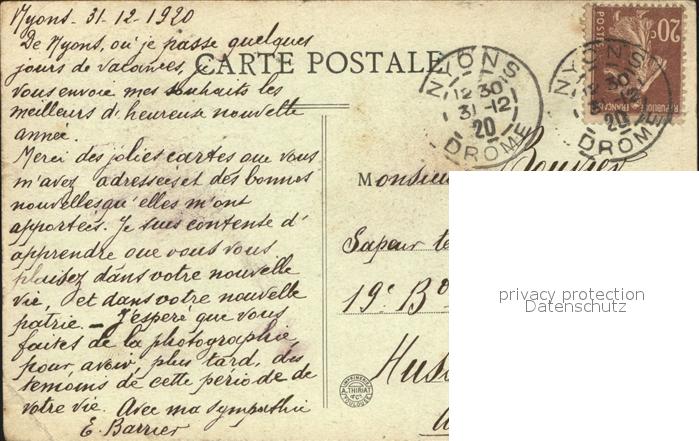 Nyons - 31-12-1920
De Nyons, où je passe quelques
jours de vacances, je
vous envoie mes souhaits les
meilleurs d'heureuse nouvelle
année.
Merci des jolies cartes que vous
m'avez adressées et des bonnes
nouvelles qu'elles m'ont
apportées. Je suis contente d'
apprendre que vous vous
plaisez dans votre nouvelle
vie, et dans votre nouvelle
patrie. - J'espère que vous
faites de la photographie
pour avoir, plus tard, des
témoins de cette période de
votre vie. Avec ma sympathie
E. Barrier
CARTE POSTALE
NYONS
12 30
31-12
20
DROME
NYONS
20
DROME
20c
POSTES
REPUBLIQUE FRANÇAISE
Monsieur Bouvier
Sapeur te
19e B
Hus
IMPRIMERIE
A. THIRIAT
& Cie
TOULOUSE
privacy protection
Datenschutz